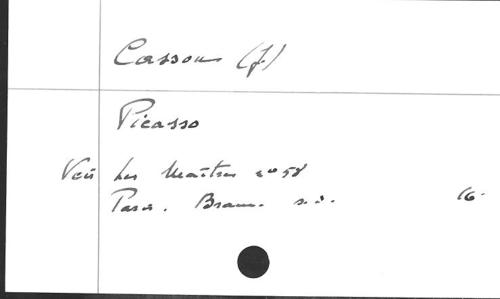 Cassou (J)
Picasso
Voir Les Maîtres no 58
Paris. Braun. s.d. 16.